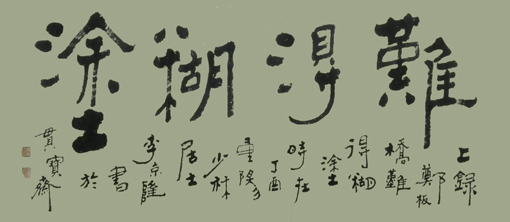 難得糊塗
上錄
鄭板
橋難
得糊
塗
時在
丁酉
少林
居士
李京隆
書
於
貫寶齋